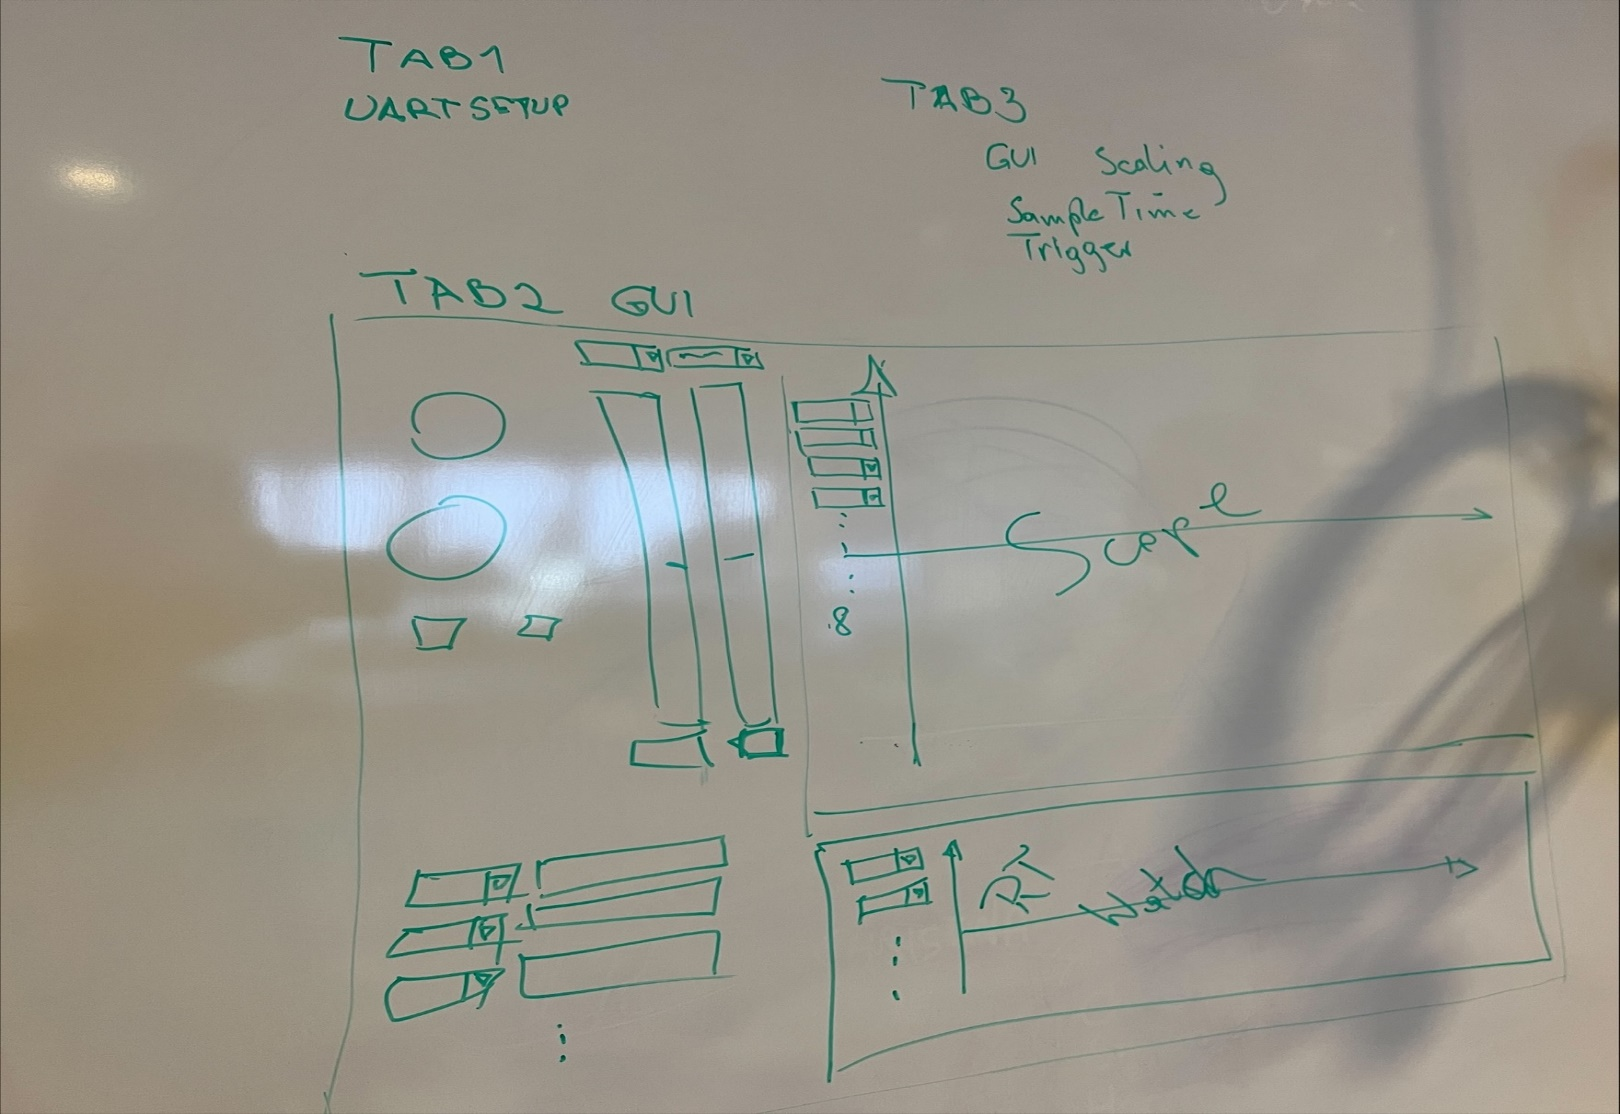 TAB1
UART SETUP
TAB3
GUI Scaling
Sample Time
Trigger
TAB2 GUI
Scope
8
Watch